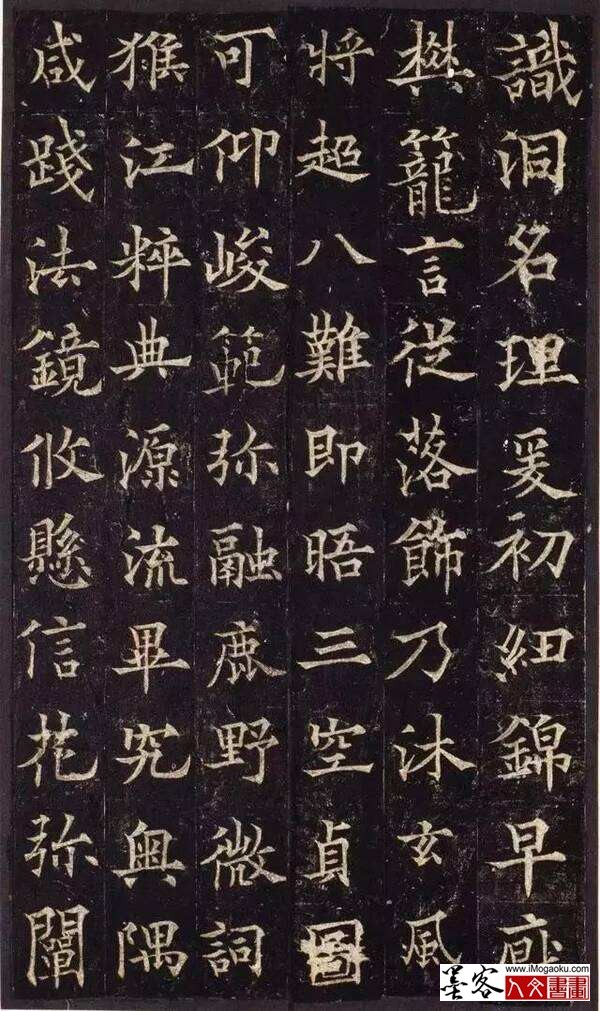 識洞名理爰初紐錦早
樊籠言從落飾乃沐玄風
將超八難即晤三空貞圖
可仰峻範弥融鹿野微詞
猴江粹典源流畢究奧隅
咸踐法鏡攸懸信花弥闡
www.iMogaoku.com
墨客人文書畫